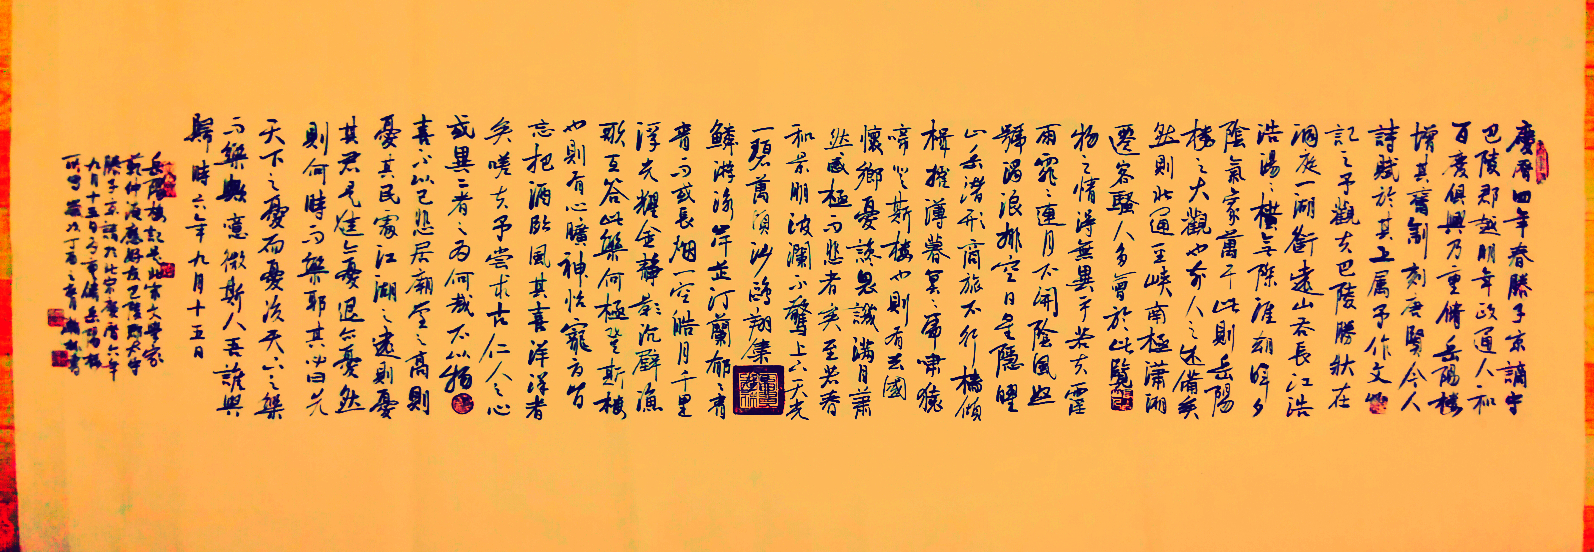 慶曆四年春滕子京謫守
巴陵郡越明年政通人和
百廢俱興乃重脩岳陽樓
增其舊制刻唐賢今人
詩賦於其上属予作文以
記之予觀夫巴陵勝狀在
洞庭一湖銜遠山吞長江浩
浩湯湯橫無際涯朝暉夕
陰氣象萬千此則岳陽
樓之大觀也前人之述備矣
然則北通巫峽南極瀟湘
遷客騷人多會於此覽
物之情得無異乎若夫霪
雨霏霏連月不開陰風怒
號濁浪排空日星隱曜
山岳潛形商旅不行檣傾
楫摧薄暮冥冥虎嘯猿
啼登斯樓也則有去國
懷鄉憂讒畏譏滿目蕭
然感極而悲者矣至若春
和景明波瀾不驚上下天光
一碧萬頃沙鷗翔集
鱗游泳岸芷汀蘭郁郁青
青而或長烟一空皓月千里
浮光耀金靜影沉璧漁
歌互答此樂何極登斯樓
也則有心曠神怡寵辱皆
忘把酒臨風其喜洋洋者
矣嗟夫予嘗求古仁人之心
或異二者之為何哉不以物
喜不以己悲居廟堂之高則
憂其民處江湖之遠則憂
其君是進亦憂退亦憂然
則何時而樂耶其必曰先
天下之憂而憂後天下之樂
而樂歟噫微斯人吾誰與
歸時六年九月十五日
岳陽樓記是北宋文學家
范仲淹應好友巴陵郡太守
滕子京請於北宋慶曆六年
九月十五日為重脩岳陽樓
所寫歲次丁酉之